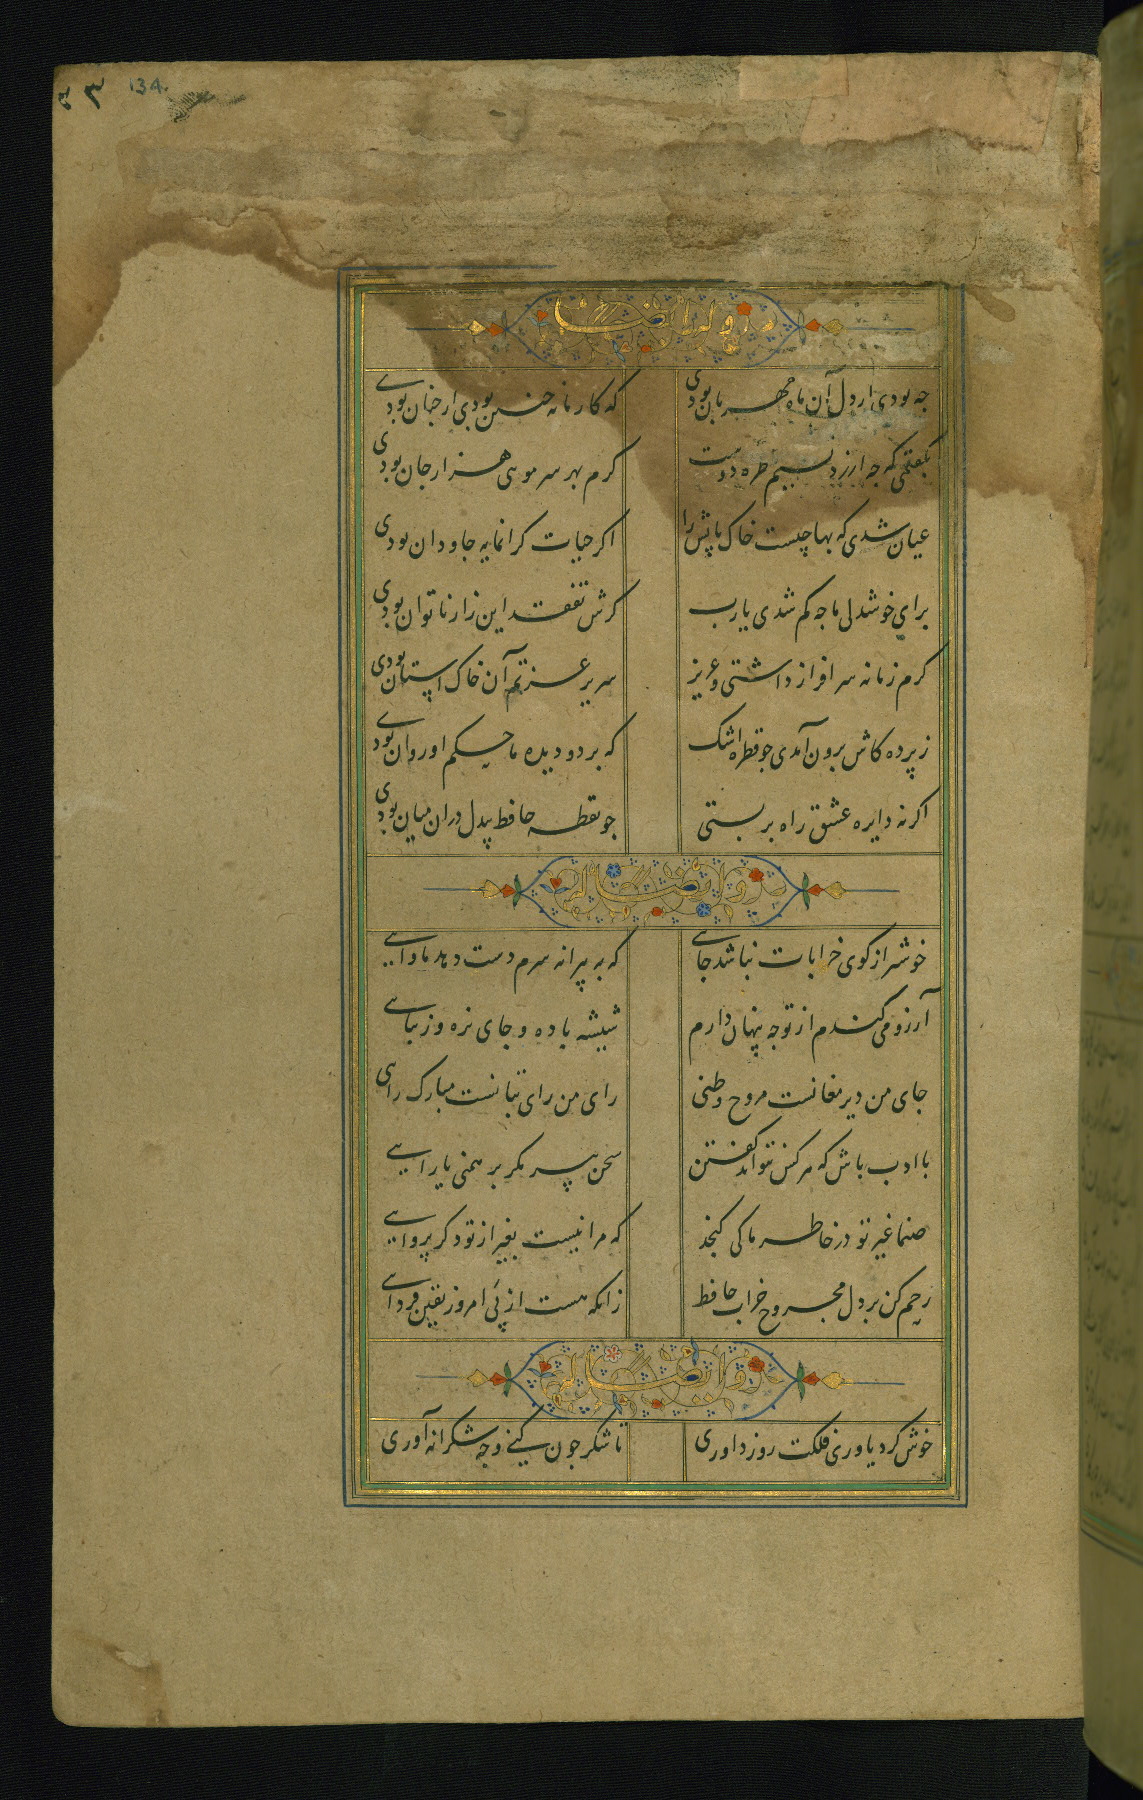 134.
جه بودی ار دل آن ماه مهربان بودی
که کار ما نه چنین بودی ار چنان بودی
بگفتمی که جه ارزد نسیم طره دوست
کرم بهر سر موئی هزار جان بودی
عیان شدی که بها چیست خاک پایش را
اکر حیات کرانمایه جاودان بودی
برای خوشدلی ما جه کم شدی یارب
کرش تفقد این زار ناتوان بودی
کرم زمانه سرافراز داشتی و عزیز
سریر عزتم آن خاک آستان بودی
ز پرده کاش برون آمدی جو قطره اشک
که بر دو دیده ما حکم او روان بودی
اکر نه دایره عشق راه بر بستی
جو نقطه حافظ بیدل در آن میان بودی
و له ایضا
خوشتر از کوی خرابات نباشد جایی
که به پیرانه سرم دست دهد ماوایی
آرزو می کندم از توجه پنهان دارم
شیشه باده و جای نزه و زیبایی
جای من دیر مغانست مروح وطنی
رای من رای بتانست مبارک رایی
با ادب باش که هر کس نتواند کفتن
سخن پیر مکر برهمنی یا رایی
صنما غیر تو در خاطر ما کی کنجد
که مرا نیست بغیر از تو دکر پروایی
رحم کن بر دل مجروح خراب حافظ
زانکه هست از پی امروز یقین فردایی
و له ایضا
خوش کرد یاوری فلکت روز داوری
تا شکر جون کنی و جه شکرانه آوری